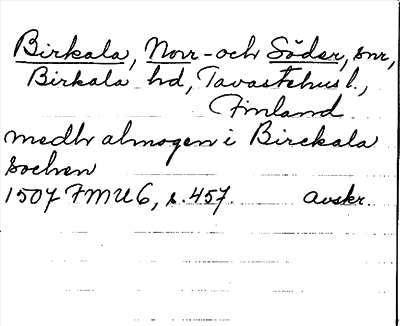 Birkala, Norr- och Söder, snr,
Birkala hd, Tavastehus l.,
Finland
medh almogen i Birckala
sochen
1507 FMU 6, s. 457. avskr.